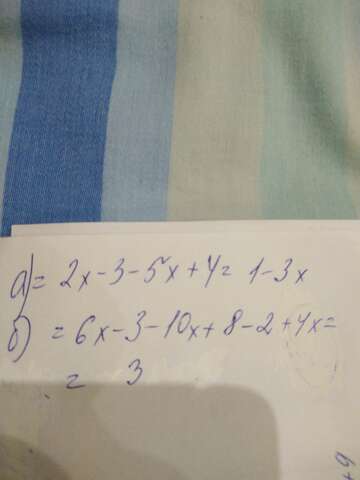 а) = 2x-3-5x+4= 1-3x
б) = 6x-3-10x+8-2+4x=
= 3
+9